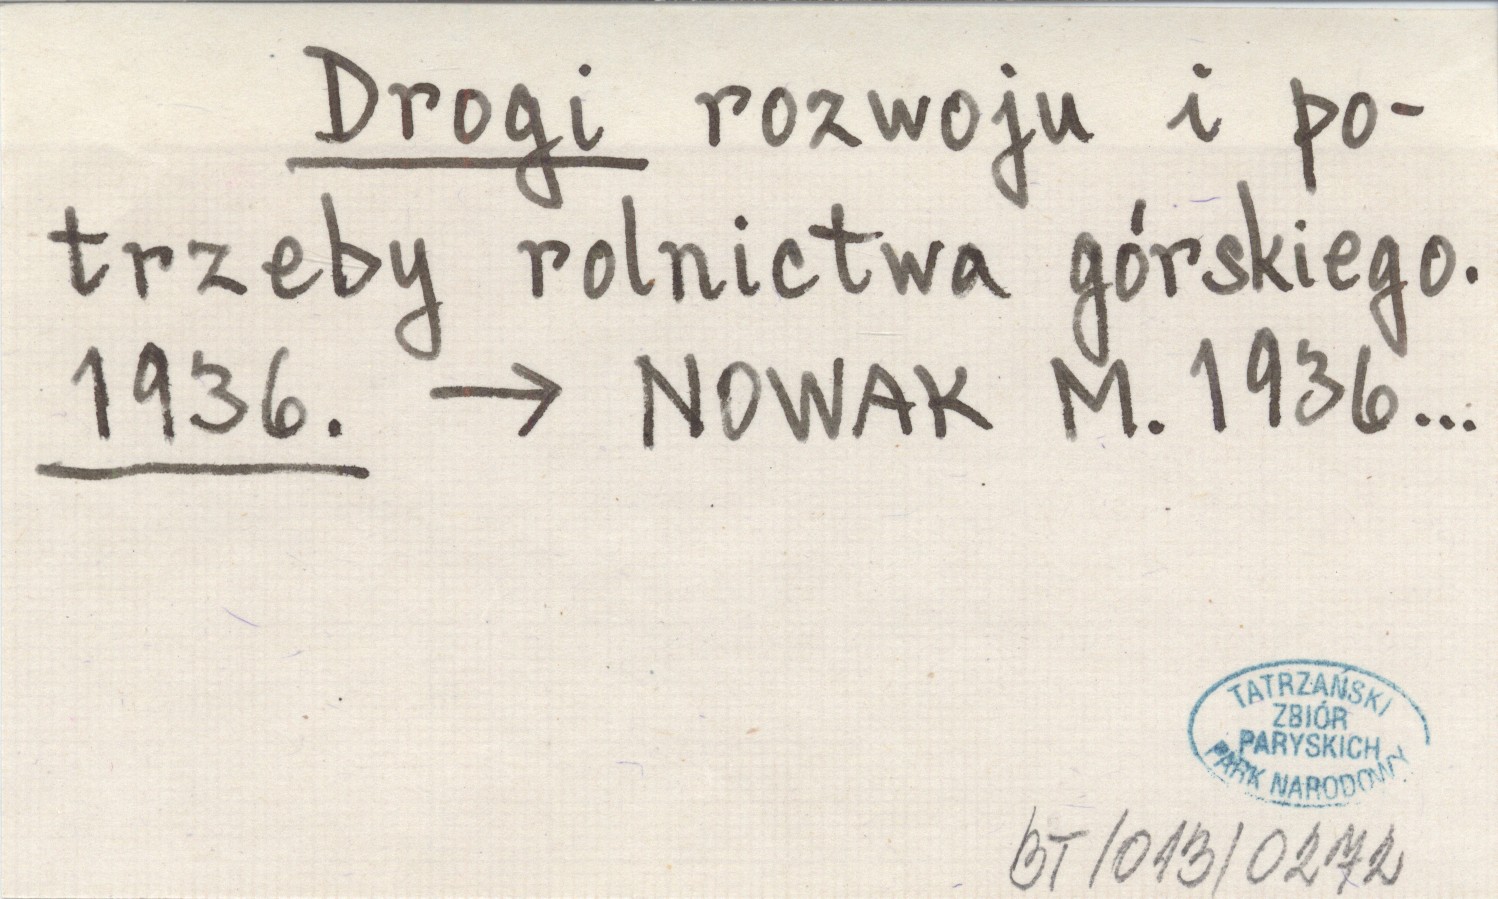 Drogi rozwoju i po-
trzeby rolnictwa górskiego.
1936. → NOWAK M. 1936...
TATRZAŃSKI
ZBIÓR
PARYSKICH
PARK NARODOWY
BT/013/0272